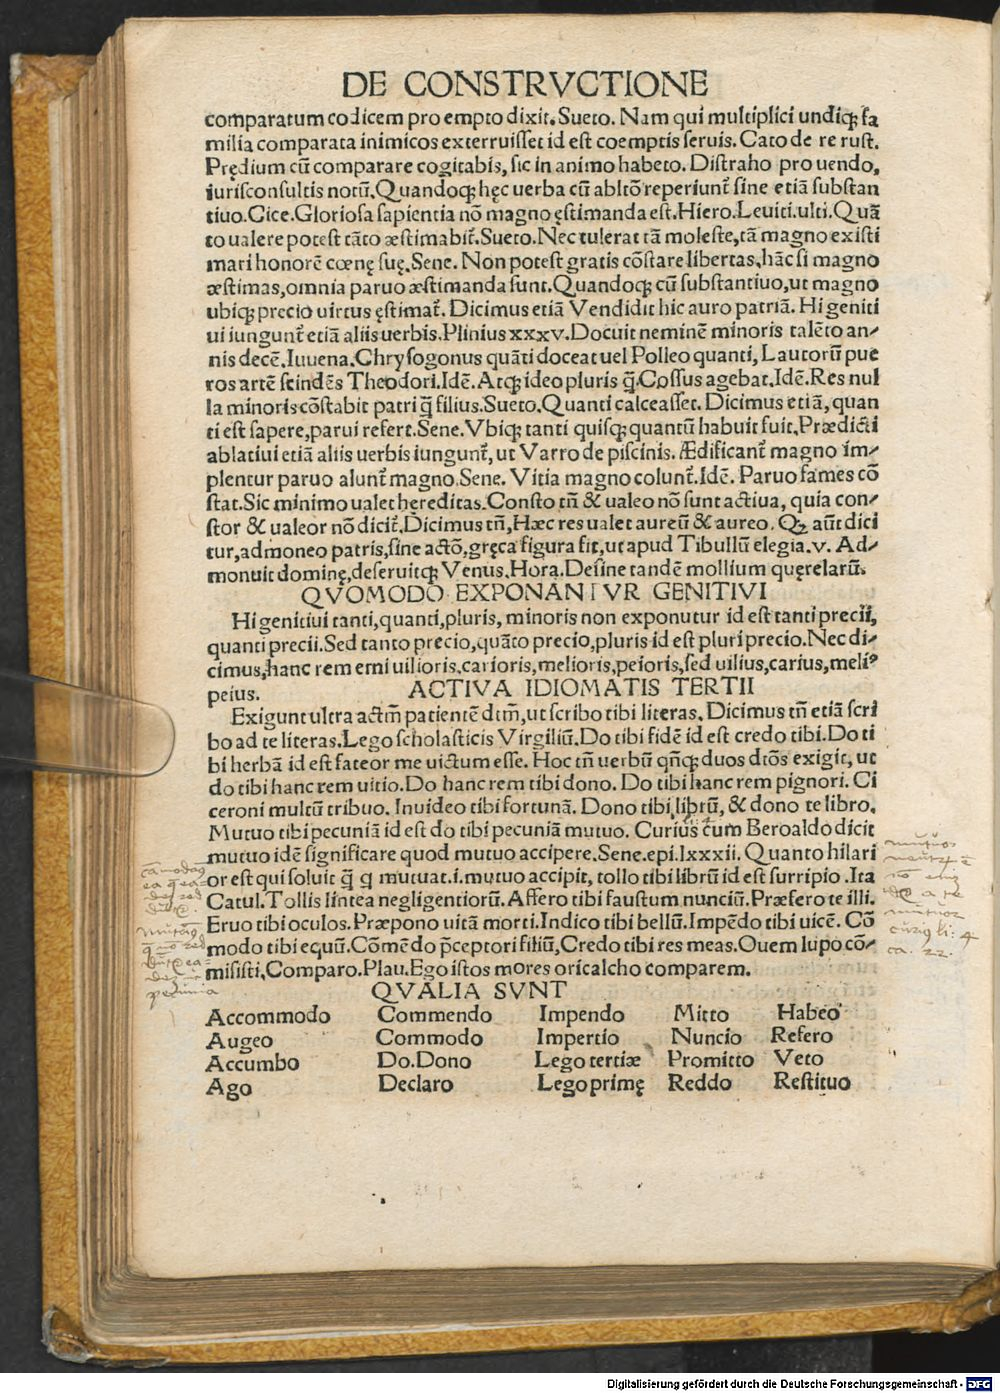 DE CONSTRVCTIONE
comparatum codicem pro empto dixit. Sueto. Nam qui multiplici undiqꝫ fa
milia comparata inimicos exterruisset id est coemptis seruis. Cato de re rust.
Prędium cū comparare cogitabis, sic in animo habeto. Distraho pro uendo,
iurisconsultis notū. Quandoqꝫ hęc uerba cū abltō reperiunt̃ sine etiā substan
tiuo. Cice. Gloriosa sapientia nō magno ęstimanda est. Hiero. Leuiti. ulti. Quā
to ualere potest tāto æstimabit̃. Sueto. Nec tulerat tā moleste, tā magno existi
mari honorē cœnę suę. Sene. Non potest gratis cōstare libertas, hāc si magno
æstimas, omnia paruo æstimanda sunt. Quandoqꝫ cū substantiuo, ut magno
ubiqꝫ precio uirtus ęstimat̃. Dicimus etiā Vendidit hic auro patriā. Hi geniti
ui iungunt̃ etiā aliis uerbis. Plinius xxxv. Docuit neminē minoris talēto an-
nis decē. Iuuena. Chrysogonus quāti doceat uel Polleo quanti, Lautorū pue
ros artē scindēs Theodori. Idē. Atqꝫ ideo pluris q̃. Cossus agebat. Idē. Res nul
la minoris cōstabit patri q̃ filius. Sueto. Quanti calceasset. Dicimus etiā, quan
ti est sapere, parui refert. Sene. Vbiqꝫ tanti quisqꝫ quantū habuit fuit. Prædicti
ablatiui etiā aliis uerbis iungunt̃, ut Varro de piscinis. Ædificant̃ magno im-
plentur paruo alunt̃ magno. Sene. Vitia magno colunt̃. Idē. Paruo fames cō
stat. Sic minimo ualet hereditas. Consto tñ & ualeo nō sunt actiua, quia con-
stor & ualeor nō dicit̃. Dicimus tñ, Hæc res ualet aureū & aureo. Qꝫ aūt dici
tur, admoneo patris, sine actō, gręca figura fit, ut apud Tibullū elegia. v. Ad-
monuit dominę, deseruitqꝫ Venus. Hora. Desine tandē mollium quęrelarū.
QVOMODO EXPONANTVR GENITIVI
Hi genitiui tanti, quanti, pluris, minoris non exponutur id est tanti precii,
quanti precii. Sed tanto precio, quāto precio, pluris id est pluri precio. Nec di-
cimus, hanc rem emi uilioris, carioris, melioris, peioris, sed uilius, carius, meliꝰ
peius.
ACTIVA IDIOMATIS TERTII
Exigunt ultra actm̃ patientē dtm̃, ut scribo tibi literas. Dicimus tñ etiā scri
bo ad te literas. Lego scholasticis Virgiliū. Do tibi fidē id est credo tibi. Do ti
bi herbā id est fateor me uictum esse. Hoc tñ uerbū qñqꝫ duos dtōs exigit, ut
do tibi hanc rem uitio. Do hanc rem tibi dono. Do tibi hanc rem pignori. Ci
ceroni multū tribuo. Inuideo tibi fortunā. Dono tibi librū, & dono te libro.
Mutuo tibi pecuniā id est do tibi pecuniā mutuo. Curius cum Beroaldo dicit
mutuo idē significare quod mutuo accipere. Sene. epi. lxxxii. Quanto hilari
or est qui soluit q̃ q mutuat. i. mutuo accipit, tollo tibi librū id est surripio. Ita
Catul. Tollis lintea negligentiorū. Affero tibi faustum nunciū. Præfero te illi.
Eruo tibi oculos. Præpono uitā morti. Indico tibi bellū. Impēdo tibi uicē. Cō
modo tibi equū. Cōmēdo p̄ceptori filiū, Credo tibi res meas. Ouem lupo cō-
misisti. Comparo. Plau. Ego istos mores oricalcho comparem.
QVALIA SVNT
Accommodo Commendo Impendo Mitto Habeo
Augeo Commodo Impertio Nuncio Refero
Accumbo Do. Dono Lego tertiæ Promitto Veto
Ago Declaro Lego primę Reddo Restituo
Digitalisierung gefördert durch die Deutsche Forschungsgemeinschaft - DFG